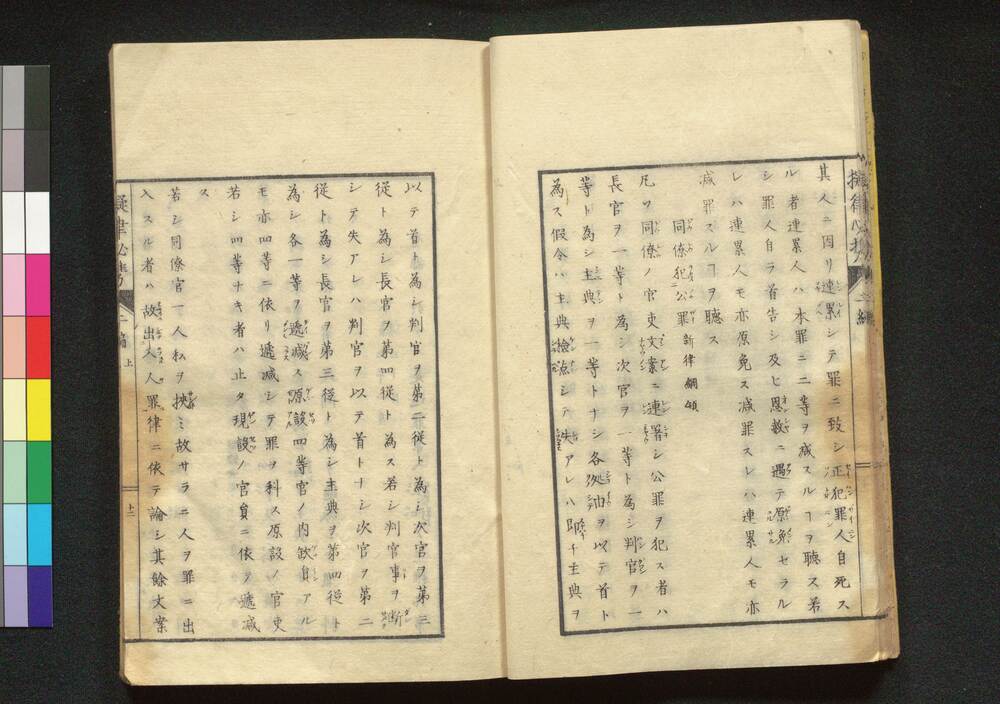 其人ニ因リ連累シテ罪ニ致シ正犯罪人自死ス
ル者連累人ハ本罪ニ二等ヲ减スルヿヲ聴ス若
シ罪人自ラ首告シ及ヒ恩赦ニ遇テ原免セラル
レハ連累人モ亦原免ス减罪スレハ連累人モ亦
减罪スルヿヲ聴ス
同僚犯公罪 新律綱領
凡ソ同僚ノ官吏文案ニ連署シ公罪ヲ犯ス者ハ
長官ヲ一等ト為シ次官ヲ一等ト為シ判官ヲ一
等ト為シ主典ヲ一等トナシ各〻由ヲ以テ首ト
為ス假令ハ主典檢㸃シテ失アレハ即チ主典ヲ
以テ首ト為シ判官ヲ第二從ト為シ次官ヲ第三
從ト為シ長官ヲ第四從ト為ス若シ判官事ヲ断
シテ失アレハ判官ヲ以テ首トナシ次官ヲ第二
從ト為シ長官ヲ第三從ト為シ主典ヲ第四從ト
為シ各一等ヲ遞减ス原設四等官ノ内缺員アル
モ亦四等ニ依リ遞减シテ罪ヲ科ス原設ノ官吏
若シ四等ナキ者ハ止タ現設ノ官員ニ依テ遞减
ス
若シ同僚官一人私ヲ挾ミ故サラニ人ヲ罪ニ出
入スル者ハ故出入人罪律ニ依テ論シ其餘文案
上
十二